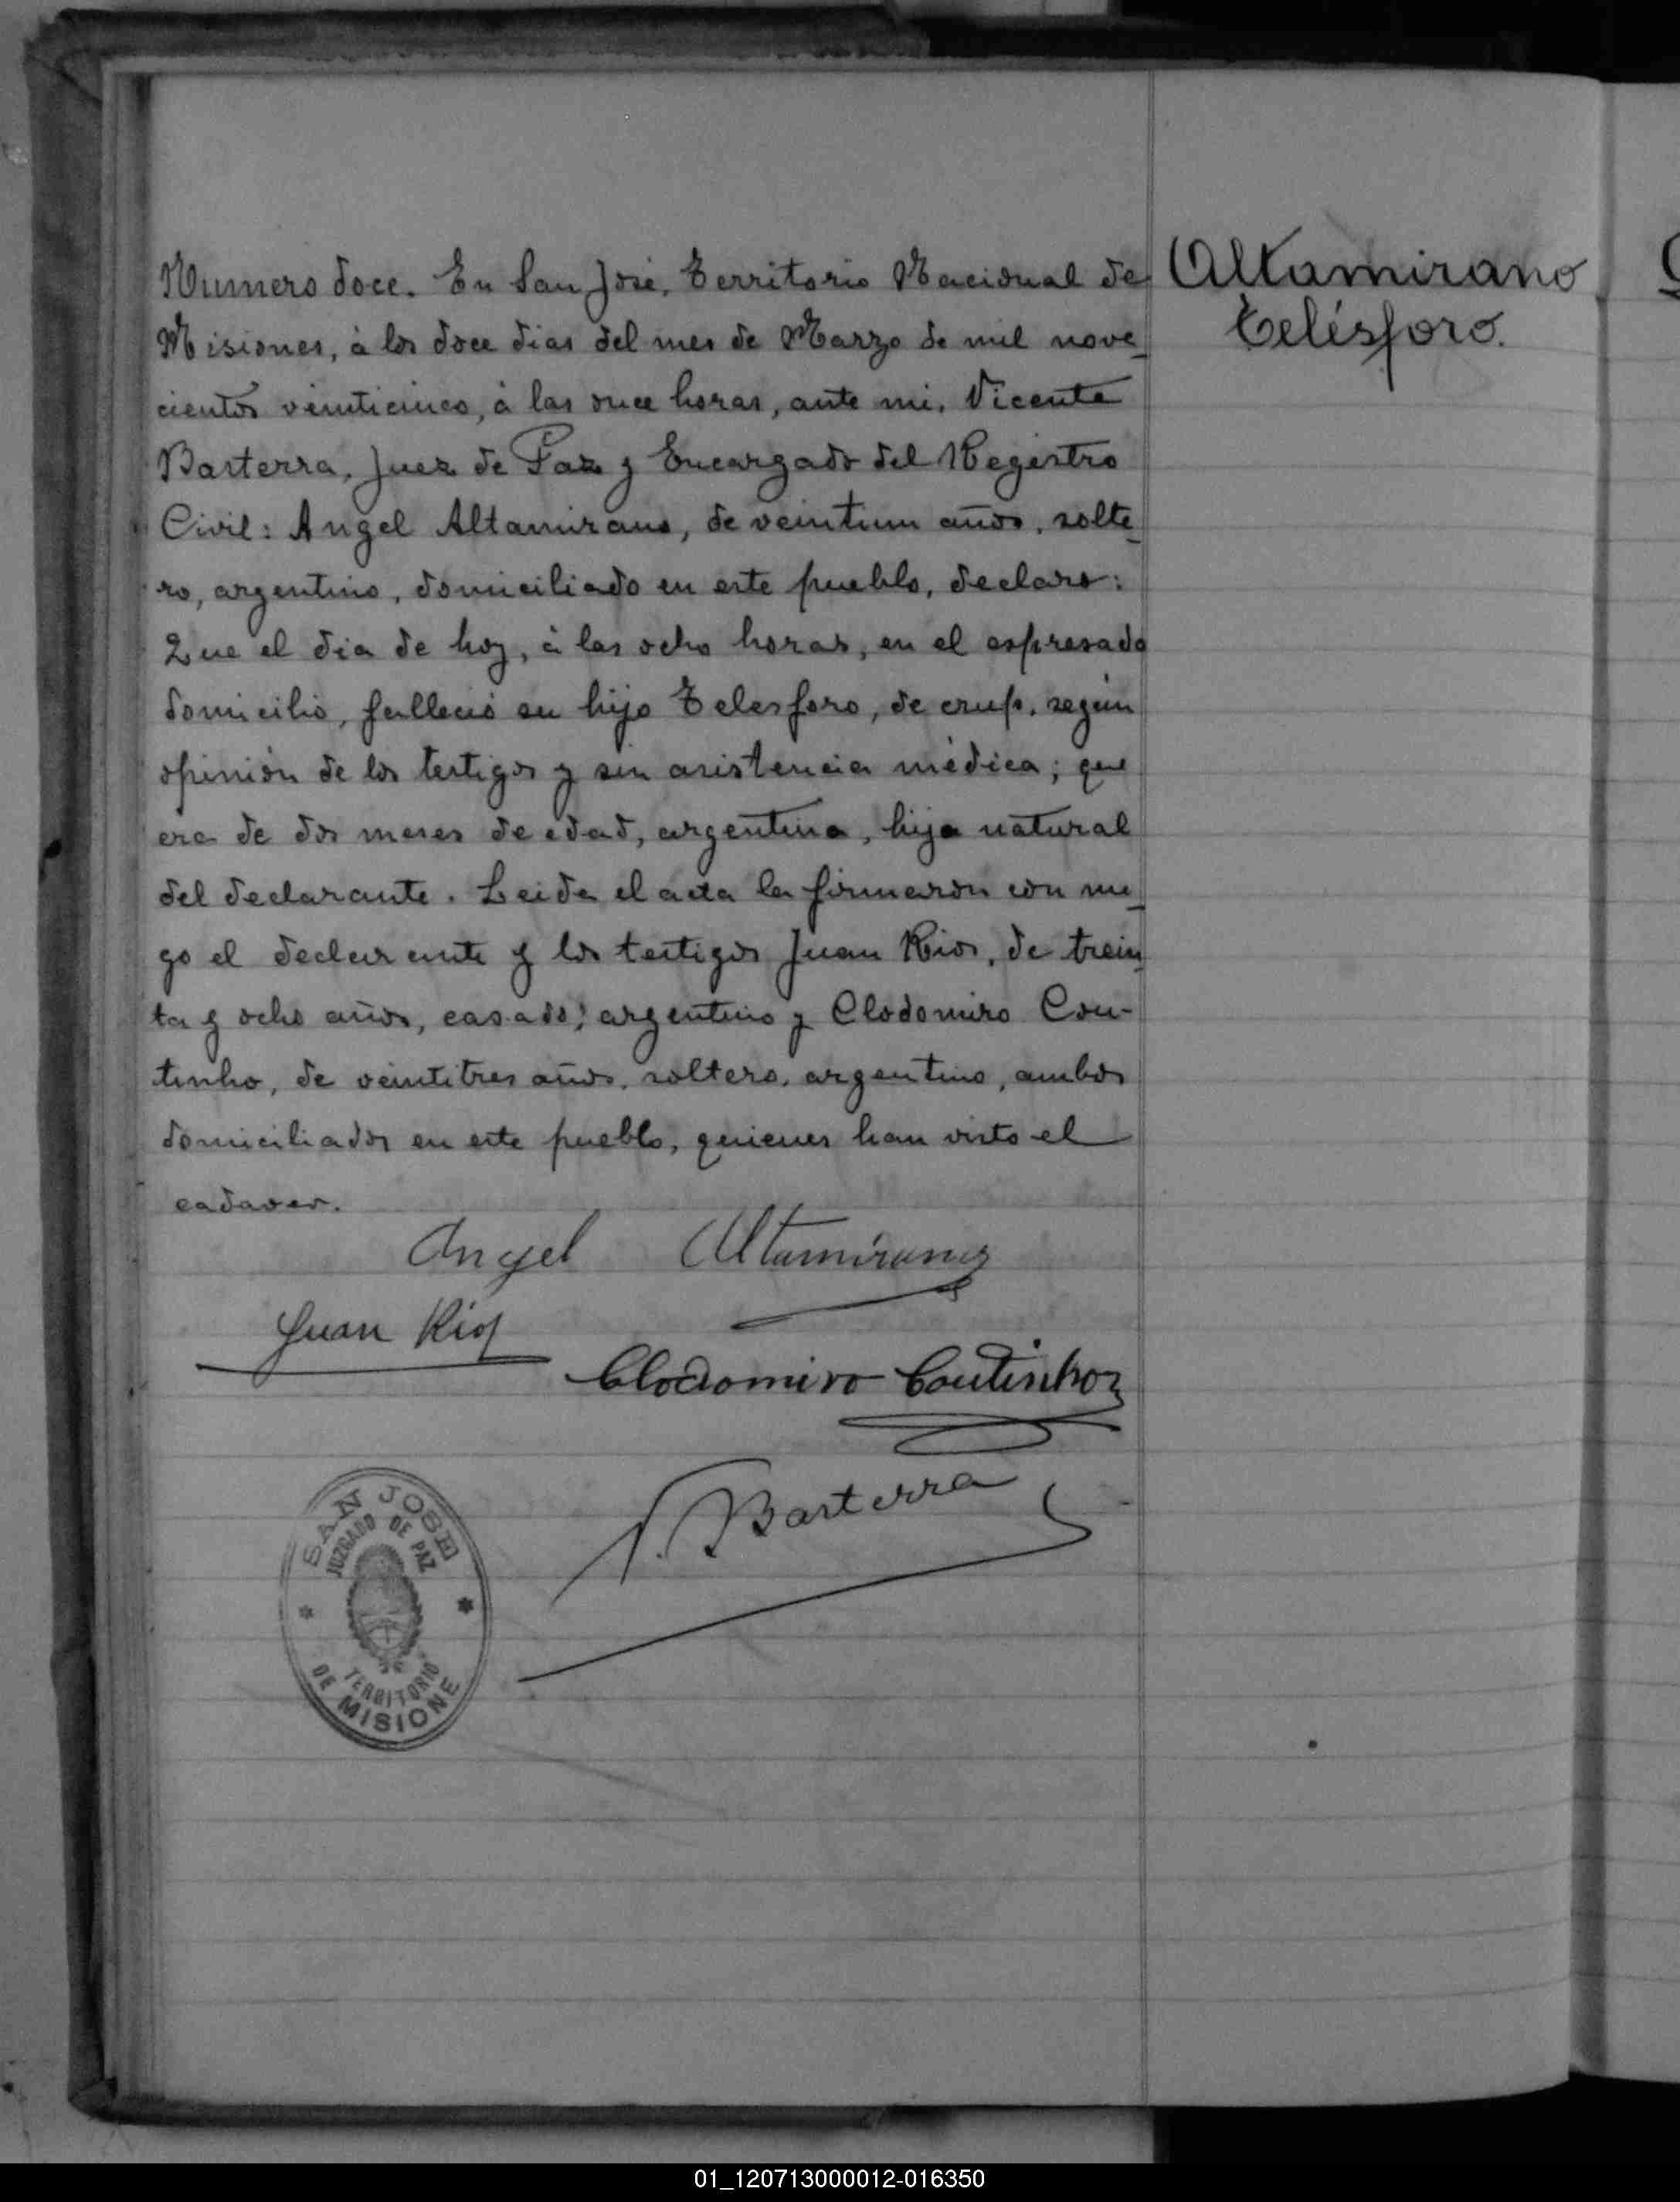 Numero doce. En San José, Territorio Nacional de
Misiones, à los doce dias del mes de Marzo de mil nove_
cientos veinticinco, à las once horas, ante mi, Vicente
Basterra, Juez de Paz y Encargado del Registro
Civil: Angel Altamirano, de veintiun años, solte_
ro, argentino, domiciliado en este pueblo, declaro:
Que el dia de hoy, à las ocho horas, en el espresado
domicilio, falleció su hijo Telesforo, de crup, según
opinión de los testigos y sin asistencia médica; que
era de dos meses de edad, argentino, hijo natural
del declarante. Leida el acta la firmaron con mi_
go el declarante y los testigos Juan Rios, de trein_
ta y ocho años, casado, argentino y Clodomiro Cou-
tinho, de veintitres años, soltero, argentino, ambos
domiciliados en este pueblo, quienes han visto el
cadaver.
Altamirano
Telésforo.
Angel Altamirano
Juan Rios
Clodomiro Coutinho
V. Basterra
SAN JOSE
JUZGADO DE PAZ
TERRITORIO
DE MISIONE
01_120713000012-016350